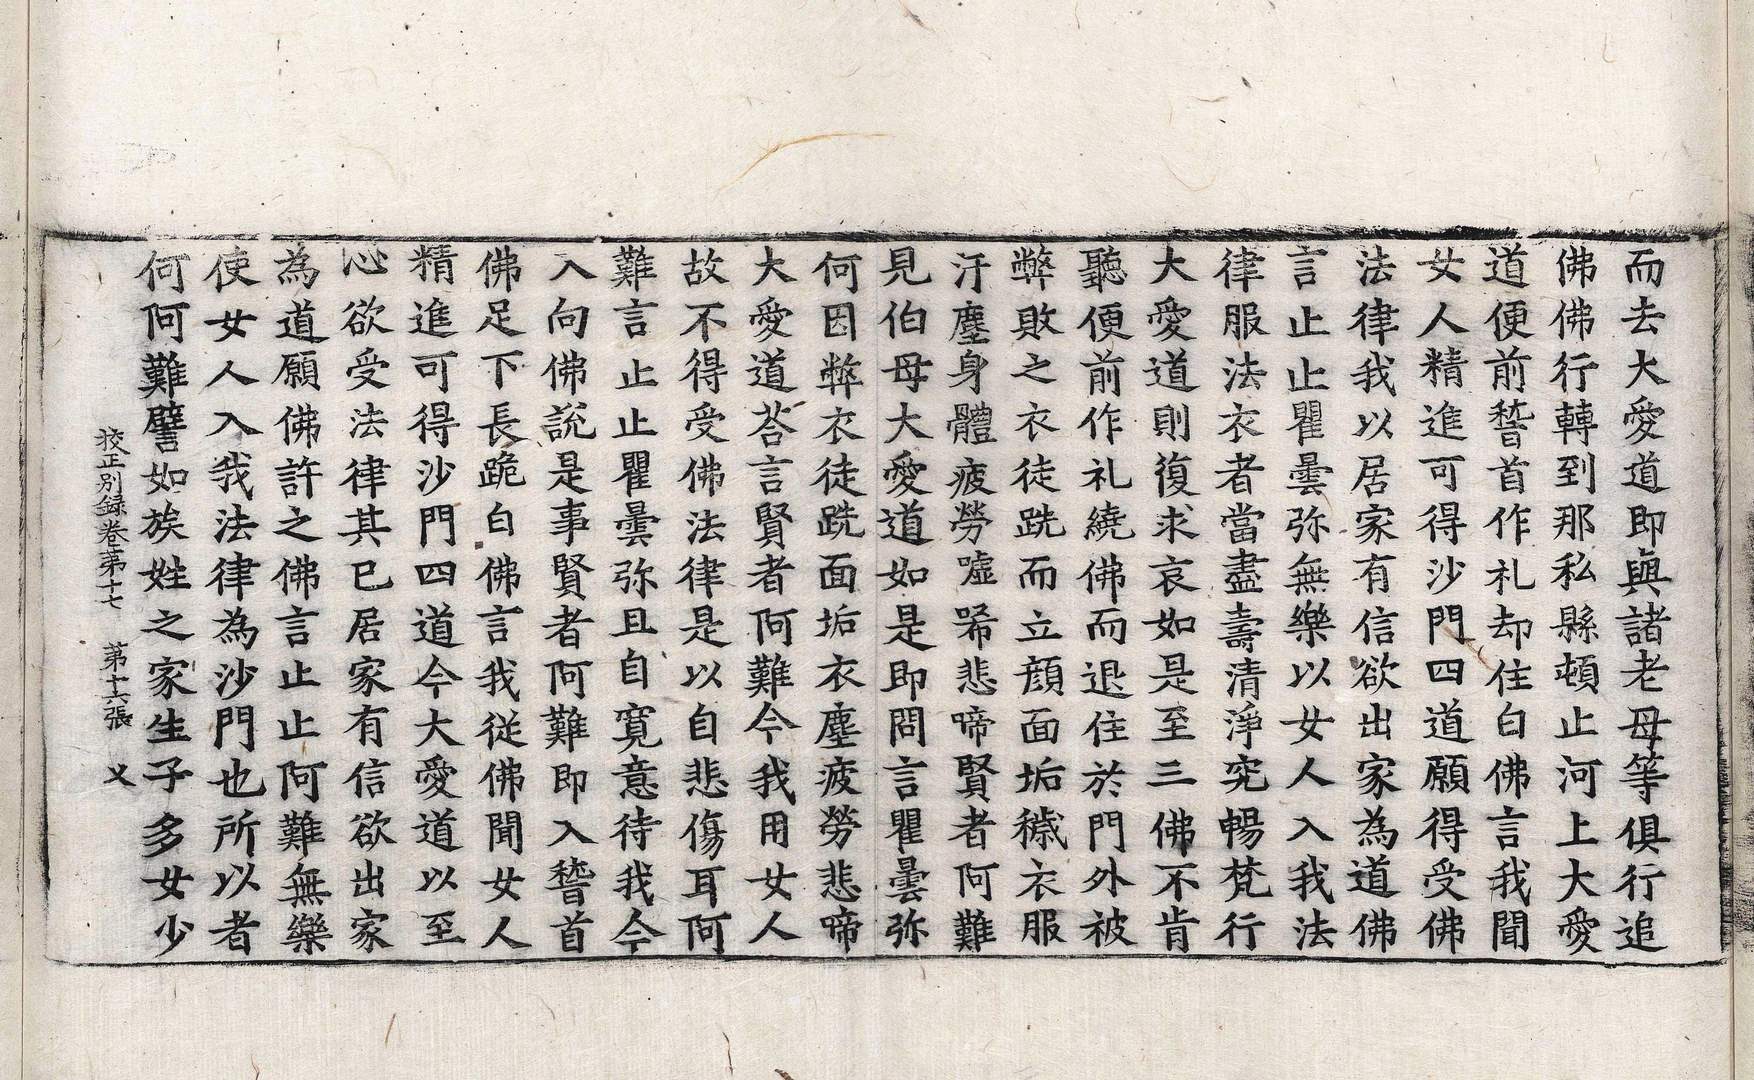 而去大愛道即與諸老母等俱行追
佛佛行轉到那私縣頓止河上大愛
道便前稽首作礼却住白佛言我聞
女人精進可得沙門四道願得受佛
法律我以居家有信欲出家為道佛
言止止瞿曇弥無樂以女人入我法
律服法衣者當盡壽清淨究暢梵行
大愛道則復求哀如是至三佛不肯
聽便前作礼繞佛而退住於門外被
弊敗之衣徒跣而立顔面垢穢衣服
汙塵身體疲勞噓唏悲啼賢者阿難
見伯母大愛道如是即問言瞿曇弥
何因弊衣徒跣面垢衣塵疲勞悲啼
大愛道荅言賢者阿難今我用女人
故不得受佛法律是以自悲傷耳阿
難言止止瞿曇弥且自寬意待我今
入向佛說是事賢者阿難即入稽首
佛足下長跪白佛言我従佛聞女人
精進可得沙門四道今大愛道以至
心欲受法律其已居家有信欲出家
為道願佛許之佛言止止阿難無樂
使女人入我法律為沙門也所以者
何阿難譬如族姓之家生子多女少
挍正別録卷第十七　第十六張　义